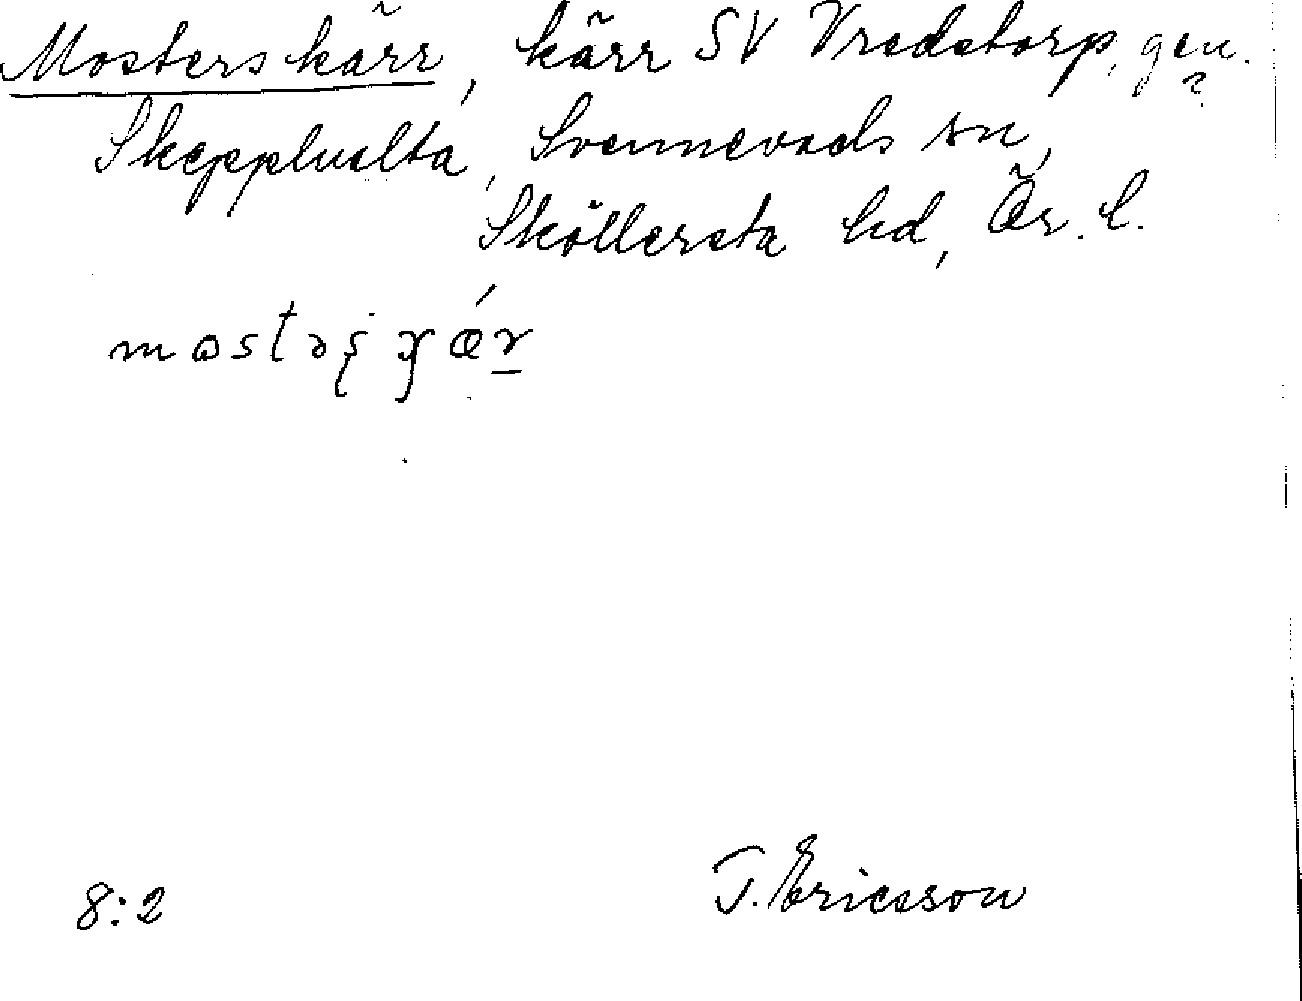 Mosterskärr, kärr SV Vredstorp, gen.
Skepphulta, Svennevads sn, ?
Sköllersta hd, Ör. l.
8:2
T. Ericsson